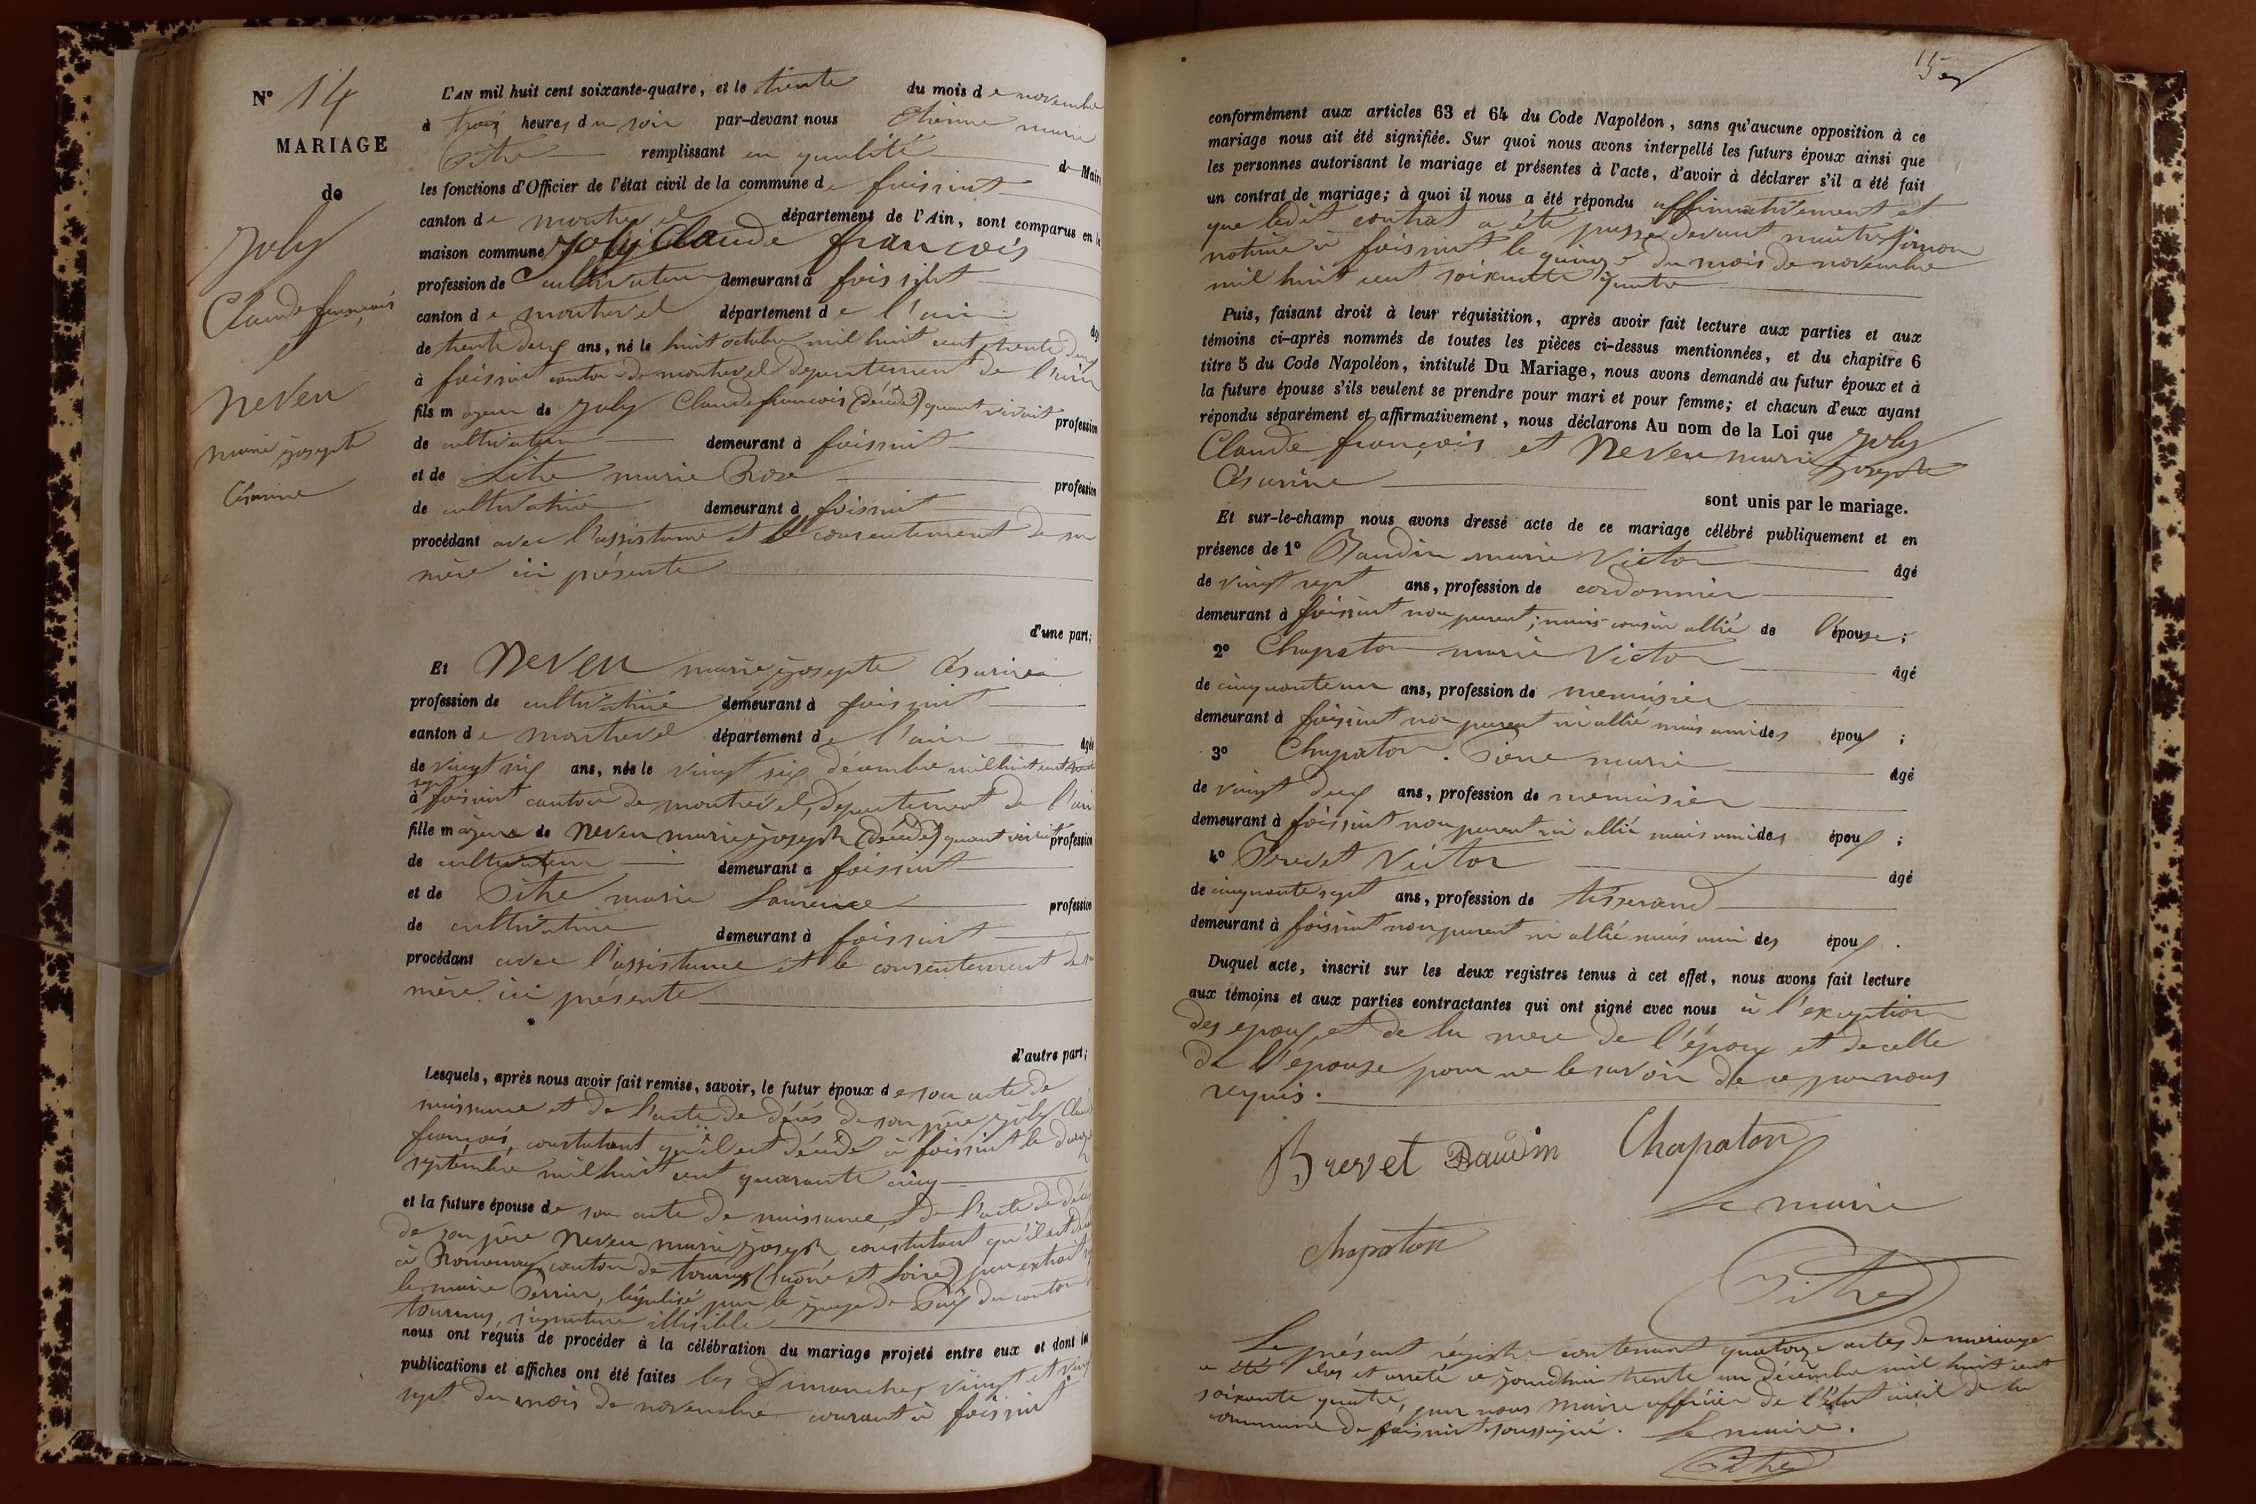 N° 14
MARIAGE
de
Joly
Claude françois
et
Neveu
marie josepte
Césarine
L'AN mil huit cent soixante-quatre, et le trente du mois de novembre
à trois heures du soir par-devant nous Etienne marie
Pithe remplissant en qualité de Maire
les fonctions d'Officier de l'état civil de la commune de foissiat
canton de montrevel département de l'Ain, sont comparus en la
maison commune Joly Claude françois
profession de Cultivateur demeurant à foissiat
canton de montrevel département de l'ain âgé
de trente deux ans, né le huit octobre mil huit cent trente deux
à foissiat canton de montrevel Département de l'ain
fils majeur de Joly Claude françois (décédé) quant vivait profession
de cultivateur demeurant à foissiat
et de Pithe marie Rose profession
de cultivatrice demeurant à foissiat
procédant avec l'assistance et le consentement de sa
mère ici présente
d'une part;
Et Neveu marie josepte Césarine
profession de cultivatrice demeurant à foissiat
canton de montrevel département de l'ain âgée
de vingt six ans, née le vingt six décembre mil huit cent trente
sept
à foissiat canton de montrevel, Département de l'ain
fille majeure de Neveu marie joseph (décédé) quant vivait profession
de cultivateur demeurant à foissiat
et de Pithe marie Laurence profession
de cultivatrice demeurant à foissiat
procédant avec l'assistance et le consentement de sa
mère ici présente
d'autre part;
Lesquels, après nous avoir fait remise, savoir, le futur époux de son acte de
naissance et de l'acte de décès de son père Joly Claude
françois, constatant qu'il est décédé à foissiat le douze
septembre mil huit cent quarante cinq
et la future épouse de son acte de naissance et de l'acte de décès
de son père Neveu marie joseph constatant qu'il est décédé
à Romenay, canton de tournus (saône et Loire) par extrait
le maire Perrin, légalisé par le juge de Paix du canton
tournus, signature illisible
nous ont requis de procéder à la célébration du mariage projeté entre eux et dont les
publications et affiches ont été faites les Dimanches vingt et vingt
sept du mois de novembre courant à foissiat
15e
conformément aux articles 63 et 64 du Code Napoléon, sans qu'aucune opposition à ce
mariage nous ait été signifiée. Sur quoi nous avons interpellé les futurs époux ainsi que
les personnes autorisant le mariage et présentes à l'acte, d'avoir à déclarer s'il a été fait
un contrat de mariage; à quoi il nous a été répondu affirmativement et
que ledit contrat a été passé devant maître simon
notaire à foissiat le quinze du mois de novembre
mil huit cent soixante quatre
Puis, faisant droit à leur réquisition, après avoir fait lecture aux parties et aux
témoins ci-après nommés de toutes les pièces ci-dessus mentionnées, et du chapitre 6
titre 5 du Code Napoléon, intitulé Du Mariage, nous avons demandé au futur époux et à
la future épouse s'ils veulent se prendre pour mari et pour femme; et chacun d'eux ayant
répondu séparément et affirmativement, nous déclarons Au nom de la Loi que Joly
Claude françois et Neveu marie josepte
Césarine
sont unis par le mariage.
Et sur-le-champ nous avons dressé acte de ce mariage célébré publiquement et en
présence de 1° Daudin marie Victor âgé
de vingt sept ans, profession de cordonnier
demeurant à foissiat non parent; mais cousin allié de l'épouse;
2° Chapaton marie Victor âgé
de cinquante un ans, profession de menuisier
demeurant à foissiat non parent ni allié mais ami des époux;
3° Chapaton Pierre marie âgé
de vingt deux ans, profession de menuisier
demeurant à foissiat non parent ni allié mais ami des époux;
4° Brevet Victor âgé
de cinquante sept ans, profession de tisserand
demeurant à foissiat non parent ni allié mais ami des époux.
Duquel acte, inscrit sur les deux registres tenus à cet effet, nous avons fait lecture
aux témoins et aux parties contractantes qui ont signé avec nous à l'exception
des époux et de la mère de l'époux et de celle
de l'épouse pour ne le savoir de ce par nous
requis.
Brevet Daudin Chapaton
Le maire
chapaton
Pithe
Le présent régistre contenant quatorze actes de mariage
a été clos et arrêté ce jourdhui trente un décembre mil huit cent
soixante quatre, par nous Maire officier de l'état civil de la
commune de foissiat soussigné. Le maire.
Pithe